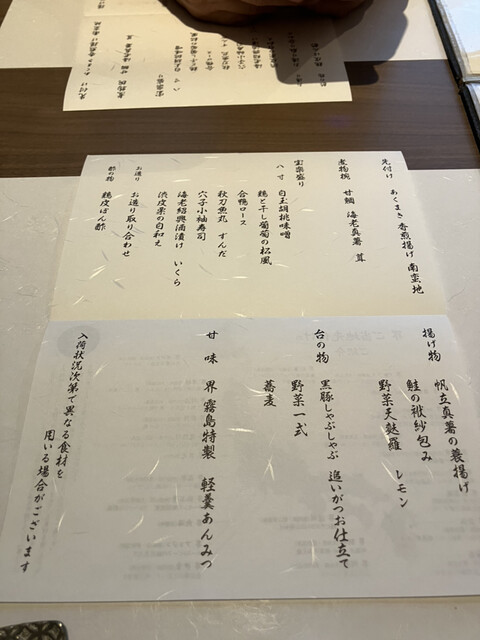 先付け　あくまき香煎揚げ　南蛮地
煮物椀　甘鯛　海老真薯　茸
宝楽盛り
八寸　白玉胡桃味噌
鶏と干し葡萄の松風
合鴨ロース
秋刀魚丸　ずんだ
穴子小袖寿司
海老紹興酒漬け　いくら
渋皮栗の白和え
お造り　お造り取り合わせ
酢の物　鶏皮ぽん酢
揚げ物　帆立真薯の蓑揚げ
鮭の袱紗包み
野菜天麩羅　レモン
台の物　黒豚しゃぶしゃぶ　追いがつお仕立て
野菜一式
蕎麦
甘味　界霧島特製　軽羹あんみつ
入荷状況次第で異なる食材を
用いる場合がございます